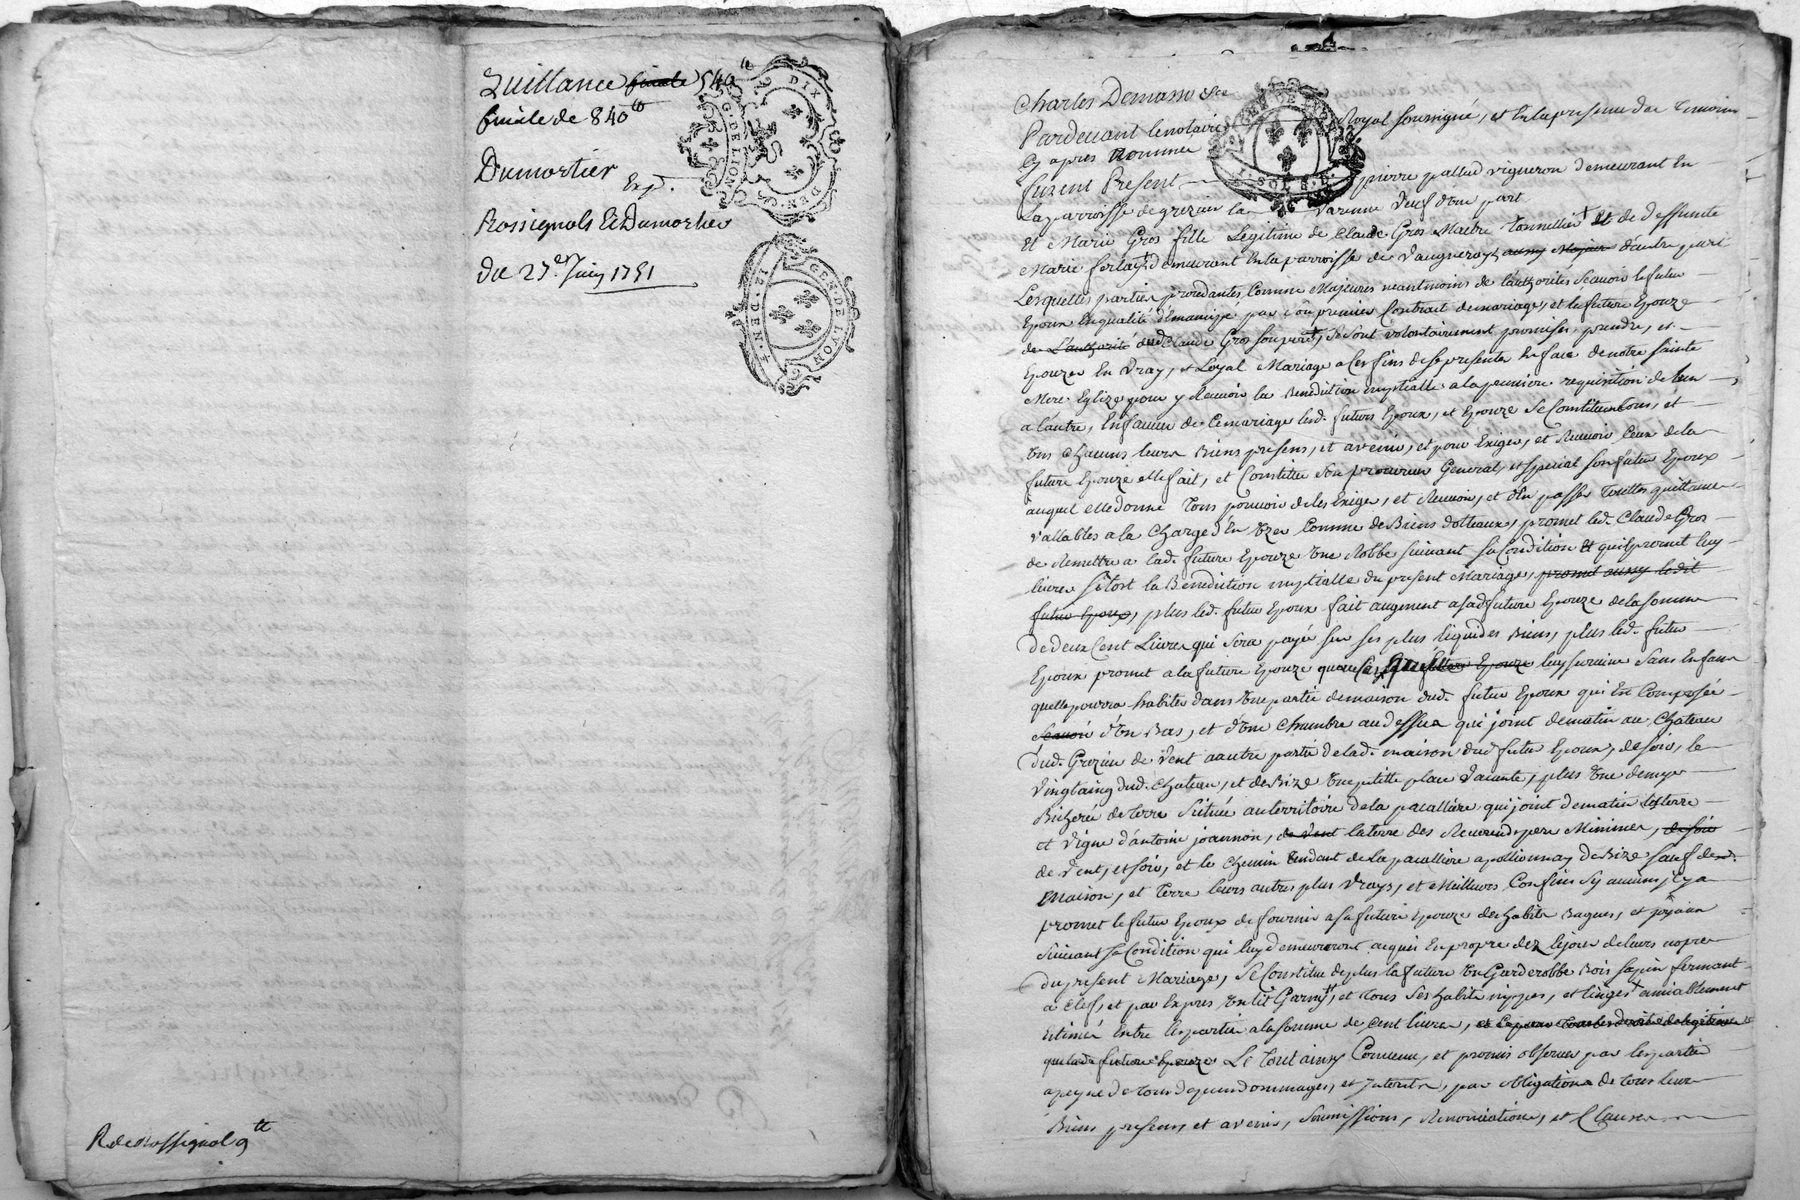 Quittance finale 540
finale de 840 tt
Dumortier
Exp.
Rossignols Et Dumortier
Du 27 Juin 1751
DIX DEN.
G. DE LION
GEN. DE LYON
12. DEN. 4
R de Rossignol 9 tt
Charles Demasso &ca
Pardevant le notaire Royal soussigné, et En la presence des temoins
Cy apres Nommes
GEN. DE LYON
1. SOL 8. D.
furent Present pierre pallud vigneron demeurant En
La parroisse de grezieu la Varenne Veuf d'une part
Et Marie Gros fille Legitime de Claude Gros Maitre Tonnellier Et de deffunte
Marie ferlay demeurant En la parroisse de Vaugneray aussy Majeur d'autre part
Lesquelles parties procedantes, Comme Majeures neantmoins de l'authorités Scavoir le futur
Epoux En qualité d'Emancipé par son premier Contrat de mariage, et la future Epouze
de L'authorité dud Claude Gros son pere, se sont volontairement promises prendre, et
Epouzer En vray, et Loyal Mariage a Ces fins de se presenter En face de notre Sainte
Mere Eglize pour y Recevoir la Benediction nuptialle a la premiere requisition de l'un
a l'autre, En faveur de Ce mariage lesd. futurs Epoux, et Epouze se Constituent tous, et
Uns Chacuns leurs Biens presens, et avenir, et pour Exiger, et Recevoir Ceux de la
future Epouze elle fait, et Constitue son procureur General, et special son futur Epoux
auquel elle donne Tous pouvoir de les Exiger, et Recevoir, et d'En passer Touttes quittances
vallables a la Charge d'En Uzer Comme de Biens dotteaux, promet led. Claude Gros
de Remettre a lad. future Epouze Une Robbe suivant sa Condition Et qu'il promet luy
livrer sitost la Benediction nuptialle du present Mariage, promet aussy ledit
futur Epoux, plus led. futur Epoux fait augment a sad future Epouze de la somme
De deux Cent Livres qui sera payée sur ses plus liquides Biens, plus led. futur
Epoux promet a la future Epouze qu'au Cas future Epouze luy survive sans Enfans
quelle pourra habiter dans Une partie de maison dud. futur Epoux qui Est Composée
Scavoir d'Un Bas, et d'Une Chambre au dessus qui joint de matin au Chateau
dud. Grezieu de Vent a autre partie de lad. maison dud futur Epoux, de soir, le
Vingtaing dud. Chateau, et de Bize Une petitte place Vacante, plus Une demye
Bicherée de Terre Scituée au territoire de la pacalliere qui joint de matin les terre
et Vigne d'antoine joannon, de Vent la terre des Reverends pere Minimes, de soir
de Vent, et soir, et le Chemin Tendant de la pacalliere a pollionnay de Bize sauf desd.
Maison, et Terre leurs autres plus Vrays, et Meilleurs Confins sy aucuns il y a
promet le futur Epoux de fournir a sa future Epouze des habits Bagues, et joyaux
Suivant sa Condition qui luy demeureront acquis En propre dez le jour de leurs nopces
du present Mariage, Se Constitue de plus la future Un Garderobbe Bois sapin fermant
a Clef, et par Expres Un lit Garny, et Tous ses habits nippes, et linges amiablement
Estimés Entre les parties a la somme de Cent livres,
que lad. future Epouze Le Tout ainsy Convenu, et promis observer par les parties
a peyne de Tous depens dommages, et Interests, par obligations de Tous leurs
Biens presens, et avenir, Soumissions, Renonciations, et Clauses